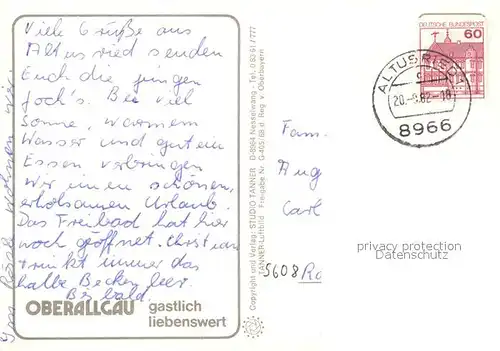 Viele Grüße aus
Altusried senden
Euch die jungen
Joch's. Bei viel
Sonne, warmem
Wasser und gutem
Essen verbringen
wir einen schönen,
erholsamen Urlaub.
Das Freibad hat hier
noch geöffnet. Christian
trinkt immer das
halbe Becken leer.
Bis bald.
Im Rössle wohnen wir.
OBERALLGÄU gastlich
liebenswert
Copyright und Verlag: STUDIO TANNER D-8964 Nesselwang - Tel. 0 83 61 / 777
TANNER-Luftbild Freigabe Nr. G-405/68 d. Reg. v. Oberbayern
DEUTSCHE BUNDESPOST
60
ALTUSRIED 1
20.-9.82-18
8966
Fam.
Aug
Carl
5608 Ra
privacy protection
Datenschutz